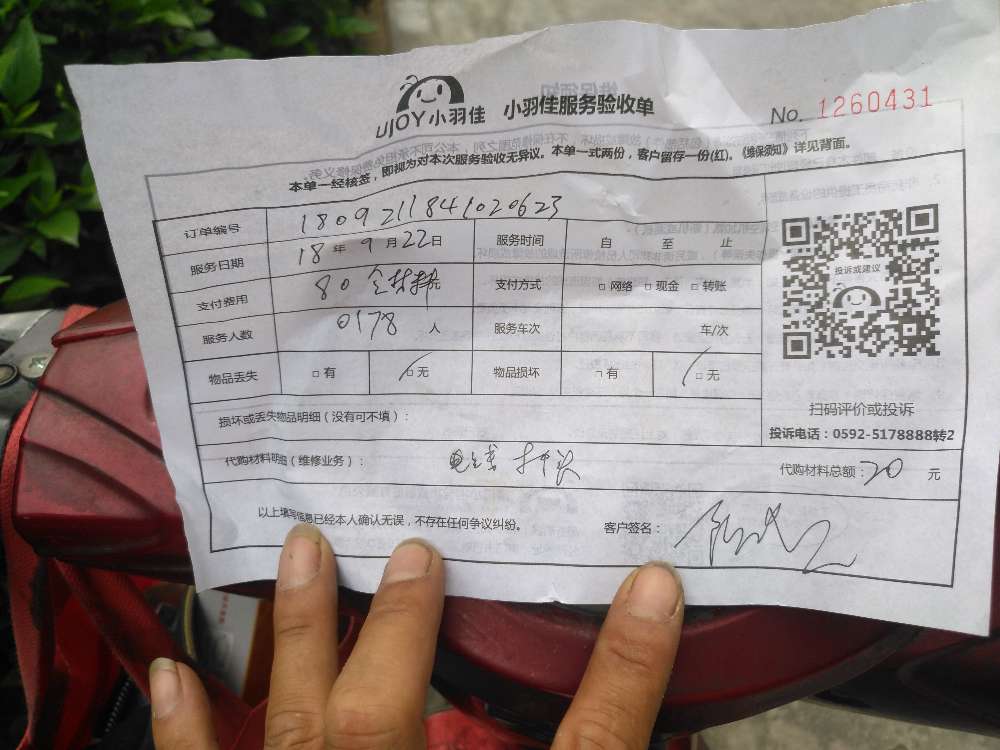 UJOY小羽佳 小羽佳服务验收单 No. 1260431
本单一经核签，即视为对本次服务验收无异议。本单一式两份，客户留存一份(红)。《维保须知》详见背面。
订单编号 1809211841020623
服务日期 18年9月22日 服务时间 自 至 止
支付费用 80 支付方式 □网络 □现金 □转账
服务人数 0178 人 服务车次 车/次
物品丢失 □有 □无 物品损坏 □有 □无
损坏或丢失物品明细（没有可不填）：
代购材料明细（维修业务）： 代购材料总额：20元
以上填写信息已经本人确认无误，不存在任何争议纠纷。 客户签名：
投诉或建议
扫码评价或投诉
投诉电话：0592-5178888转2